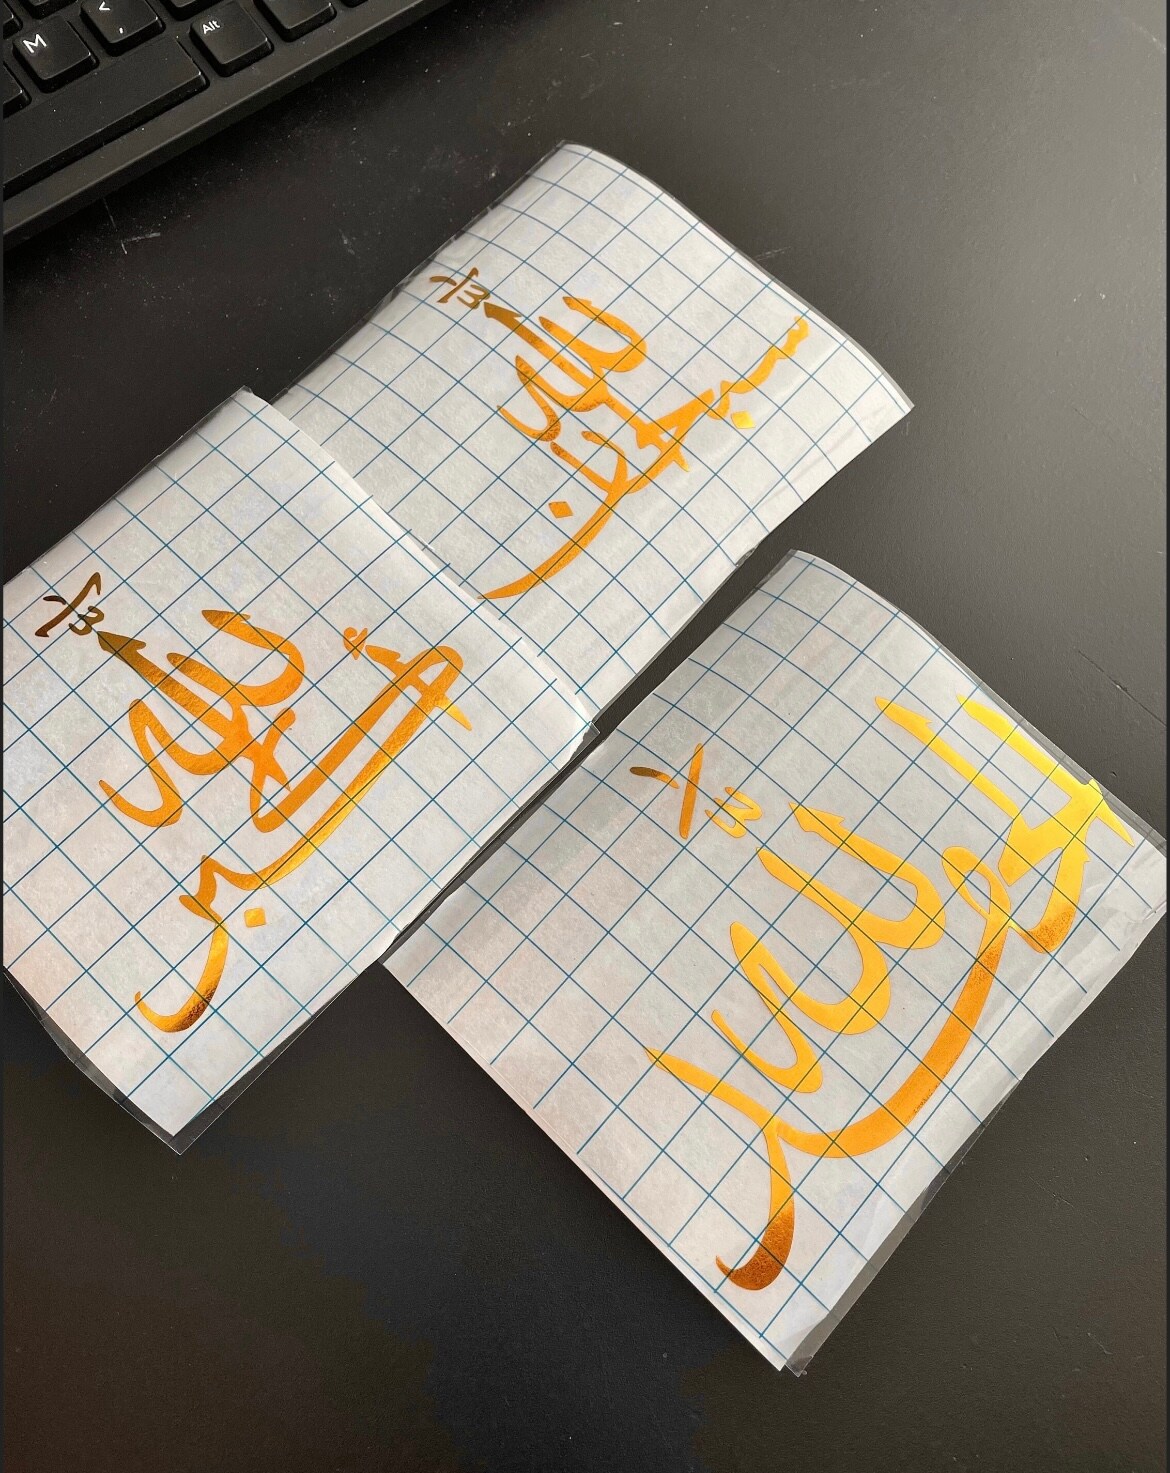 M
< ,
Alt
سبحان الله
الله أكبر
الحمد لله